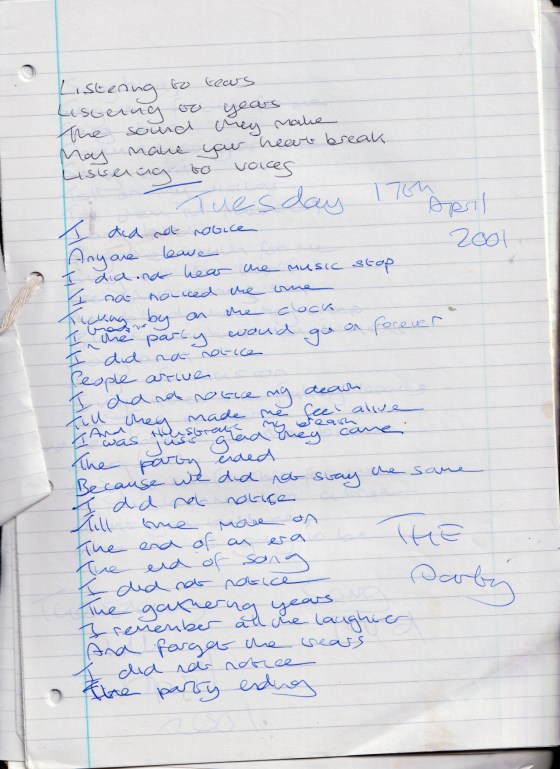 Listening to tears
Listening to years
The sound they make
May make your heart break
Listening to voices
Tuesday 17th April 2001
I did not notice
Anyone leave
I did not hear the music stop
I not noticed the time
Ticking by on the clock
I the party would go on forever
I did not notice
People arrive
I did not notice my death
Till they made me feel alive
And my breath
I was just glad they came
The party ended
Because we did not stay the same
I did not notice
Till time move on
The end of an era
The end of song
I did not notice
The gathering years
I remember all the laughter
And forgot the tears
I did not notice
The party ending
THE
Party